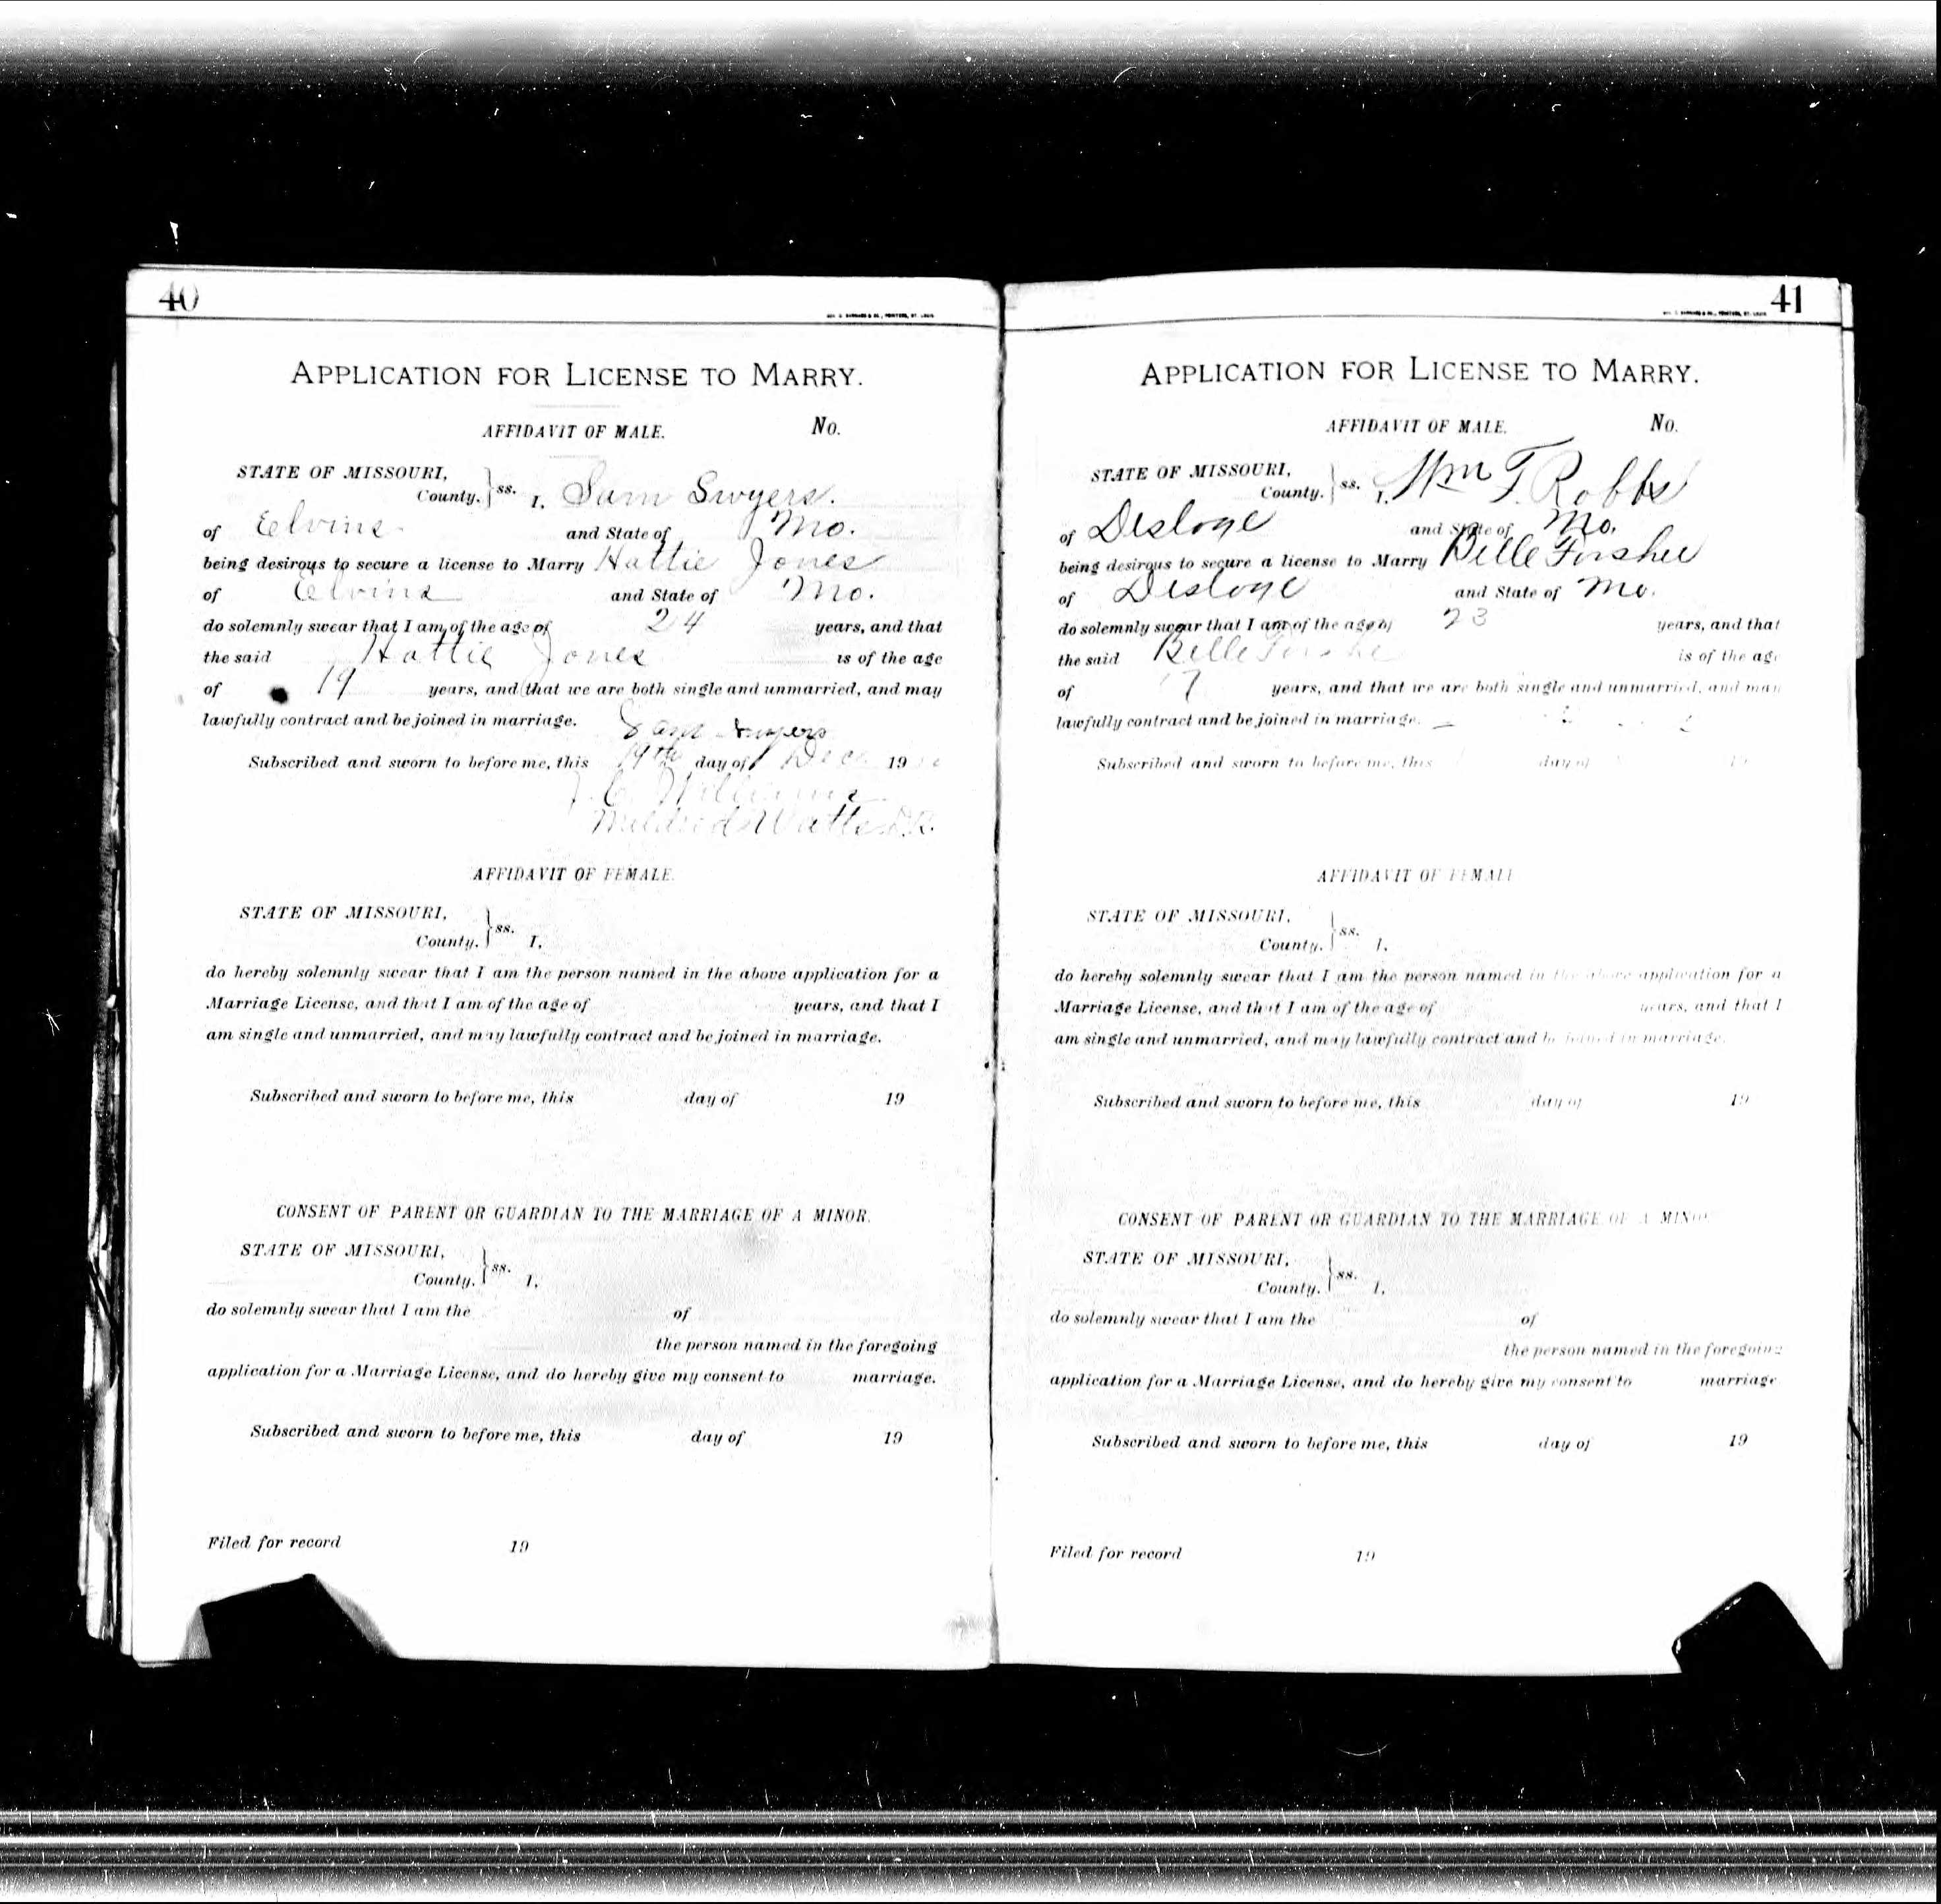 40
APPLICATION FOR LICENSE TO MARRY.
AFFIDAVIT OF MALE. No.
STATE OF MISSOURI,
County. } ss. I, Sam Swyers.
of Elvins and State of Mo.
being desirous to secure a license to Marry Hattie Jones
of Elvins and State of Mo.
do solemnly swear that I am of the age of 24 years, and that
the said Hattie Jones is of the age
of 19 years, and that we are both single and unmarried, and may
lawfully contract and be joined in marriage.
Sam Swyers
Subscribed and sworn to before me, this 19th day of Dec 19
J. C. Williams
Mildred Watts D.R.
AFFIDAVIT OF FEMALE.
STATE OF MISSOURI,
County. } ss. I,
do hereby solemnly swear that I am the person named in the above application for a
Marriage License, and that I am of the age of years, and that I
am single and unmarried, and may lawfully contract and be joined in marriage.
Subscribed and sworn to before me, this day of 19
CONSENT OF PARENT OR GUARDIAN TO THE MARRIAGE OF A MINOR.
STATE OF MISSOURI,
County. } ss. I,
do solemnly swear that I am the of
the person named in the foregoing
application for a Marriage License, and do hereby give my consent to marriage.
Subscribed and sworn to before me, this day of 19
Filed for record 19
41
APPLICATION FOR LICENSE TO MARRY.
AFFIDAVIT OF MALE. No.
STATE OF MISSOURI,
County. } ss. I, Wm T. Robbs
of Desloge and State of Mo.
being desirous to secure a license to Marry Belle Forshee
of Desloge and State of Mo.
do solemnly swear that I am of the age of 23 years, and that
the said Belle Forshee is of the age
of 17 years, and that we are both single and unmarried, and may
lawfully contract and be joined in marriage.
Subscribed and sworn to before me, this day of 19
AFFIDAVIT OF FEMALE
STATE OF MISSOURI,
County. } ss. I,
do hereby solemnly swear that I am the person named in the above application for a
Marriage License, and that I am of the age of years, and that I
am single and unmarried, and may lawfully contract and be joined in marriage.
Subscribed and sworn to before me, this day of 19
CONSENT OF PARENT OR GUARDIAN TO THE MARRIAGE OF A MINOR
STATE OF MISSOURI,
County. } ss. I,
do solemnly swear that I am the of
the person named in the foregoing
application for a Marriage License, and do hereby give my consent to marriage
Subscribed and sworn to before me, this day of 19
Filed for record 19